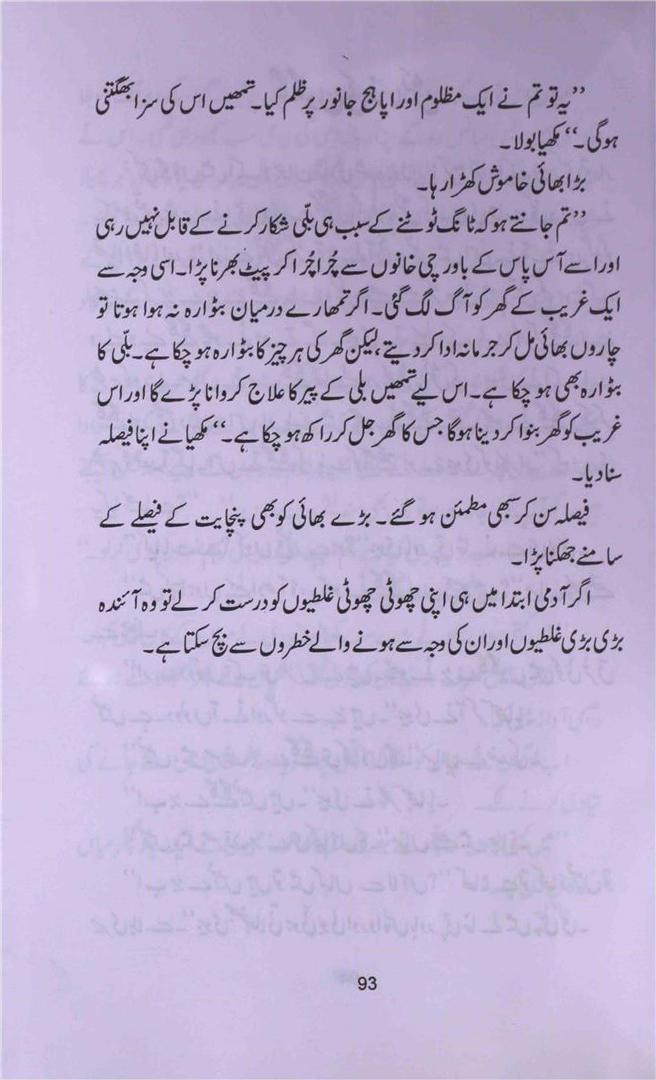 ”یہ تو تم نے ایک مظلوم اور اپاہج جانور پر ظلم کیا۔ تمھیں اس کی سزا بھگتنی
ہوگی۔“ مکھیا بولا۔
بڑا بھائی خاموش کھڑا رہا۔
”تم جانتے ہو کہ ٹانگ ٹوٹنے کے سبب ہی بلّی شکار کرنے کے قابل نہیں رہی
اور اسے آس پاس کے باورچی خانوں سے چُرا چُرا کر پیٹ بھرنا پڑا۔ اسی وجہ سے
ایک غریب کے گھر کو آگ لگ گئی۔ اگر تمھارے درمیان بٹوارہ نہ ہوا ہوتا تو
چاروں بھائی مل کر جرمانہ ادا کر دیتے، لیکن گھر کی ہر چیز کا بٹوارہ ہو چکا ہے۔ بلّی کا
بٹوارہ بھی ہو چکا ہے۔ اس لیے تمھیں بلی کے پیر کا علاج کروانا پڑے گا اور اس
غریب کو گھر بنوا کر دینا ہوگا جس کا گھر جل کر راکھ ہو چکا ہے۔“ مکھیا نے اپنا فیصلہ
سنا دیا۔
فیصلہ سن کر سبھی مطمئن ہو گئے۔ بڑے بھائی کو بھی پنچایت کے فیصلے کے
سامنے جھکنا پڑا۔
اگر آدمی ابتدا میں ہی اپنی چھوٹی چھوٹی غلطیوں کو درست کر لے تو وہ آئندہ
بڑی بڑی غلطیوں اور ان کی وجہ سے ہونے والے خطروں سے بچ سکتا ہے۔
93